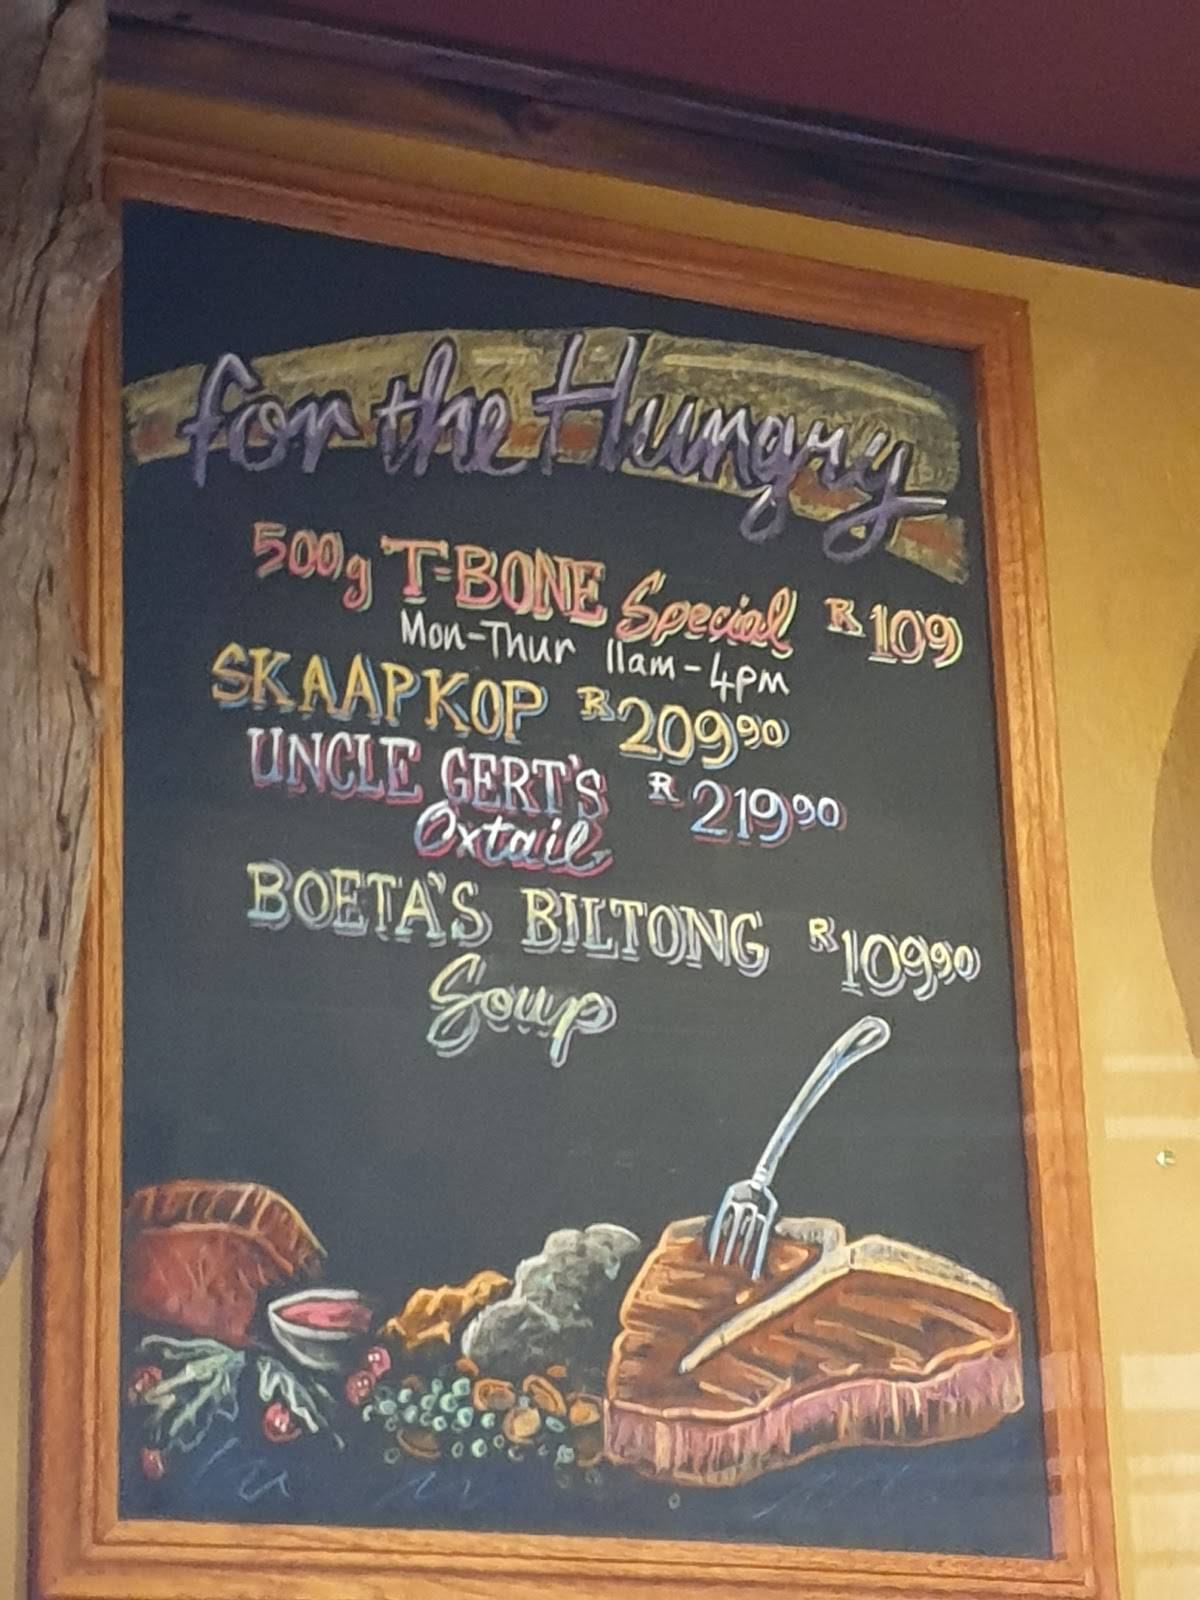 for the Hungry
500g T-BONE Special R109
Mon-Thur 11am-4pm
SKAAPKOP R209 90
UNCLE GERT'S R219 90
Oxtail
BOETA'S BILTONG R109 90
Soup